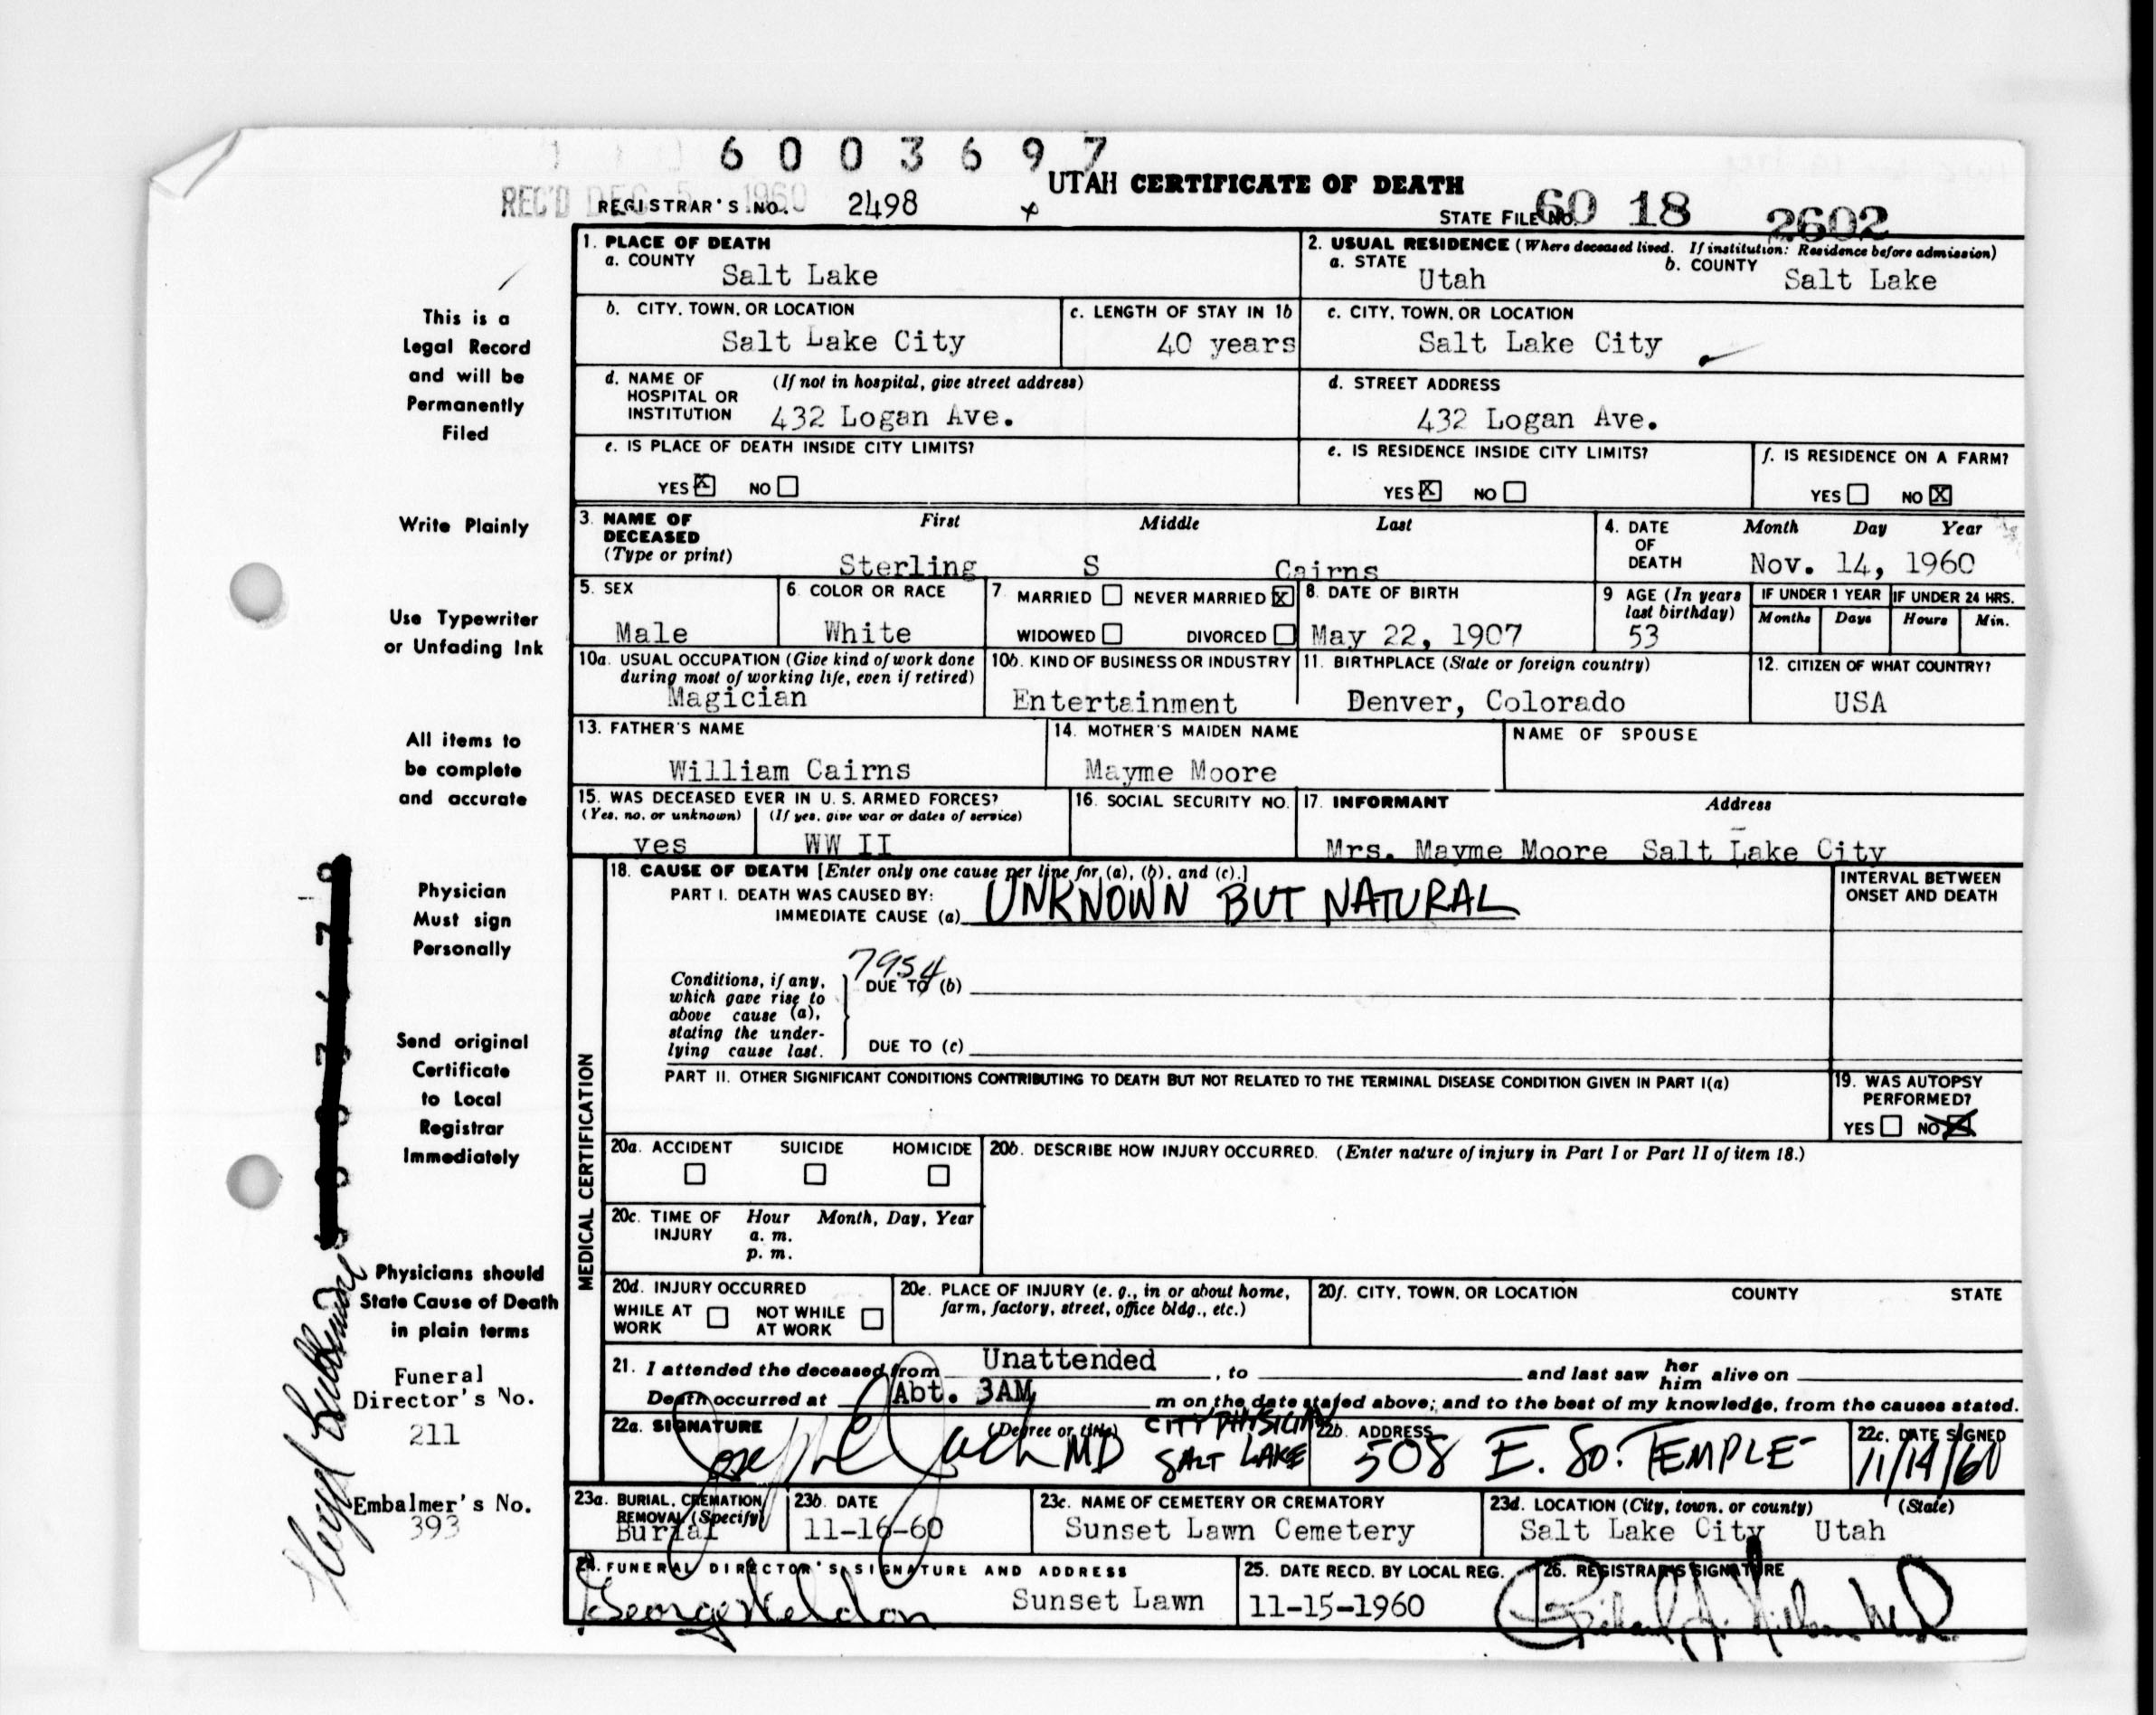 6 0 0 3 6 9 7
UTAH CERTIFICATE OF DEATH
REC'D DEC 5 1960 REGISTRAR'S NO. 2498
STATE FILE NO. 60 18 2602
1. PLACE OF DEATH
a. COUNTY
Salt Lake
2. USUAL RESIDENCE (Where deceased lived. If institution: Residence before admission)
a. STATE Utah b. COUNTY Salt Lake
b. CITY, TOWN, OR LOCATION
Salt Lake City
c. LENGTH OF STAY IN 1b
40 years
c. CITY, TOWN, OR LOCATION
Salt Lake City
d. NAME OF HOSPITAL OR INSTITUTION (If not in hospital, give street address)
432 Logan Ave.
d. STREET ADDRESS
432 Logan Ave.
e. IS PLACE OF DEATH INSIDE CITY LIMITS?
YES X NO
e. IS RESIDENCE INSIDE CITY LIMITS?
YES X NO
f. IS RESIDENCE ON A FARM?
YES NO X
3. NAME OF DECEASED (Type or print)
First Middle Last
Sterling S Cairns
4. DATE OF DEATH Month Day Year
Nov. 14, 1960
5. SEX
Male
6. COLOR OR RACE
White
7. MARRIED NEVER MARRIED X
WIDOWED DIVORCED
8. DATE OF BIRTH
May 22, 1907
9 AGE (In years last birthday)
53
IF UNDER 1 YEAR IF UNDER 24 HRS.
Months Days Hours Min.
10a. USUAL OCCUPATION (Give kind of work done during most of working life, even if retired)
Magician
10b. KIND OF BUSINESS OR INDUSTRY
Entertainment
11. BIRTHPLACE (State or foreign country)
Denver, Colorado
12. CITIZEN OF WHAT COUNTRY?
USA
13. FATHER'S NAME
William Cairns
14. MOTHER'S MAIDEN NAME
Mayme Moore
NAME OF SPOUSE
15. WAS DECEASED EVER IN U. S. ARMED FORCES?
(Yes, no, or unknown) (If yes, give war or dates of service)
yes WW II
16. SOCIAL SECURITY NO.
17. INFORMANT Address
Mrs. Mayme Moore Salt Lake City
MEDICAL CERTIFICATION
18. CAUSE OF DEATH [Enter only one cause per line for (a), (b), and (c).]
PART I. DEATH WAS CAUSED BY:
IMMEDIATE CAUSE (a) UNKNOWN BUT NATURAL
INTERVAL BETWEEN ONSET AND DEATH
7954
Conditions, if any, which gave rise to above cause (a), stating the underlying cause last.
DUE TO (b)
DUE TO (c)
PART II. OTHER SIGNIFICANT CONDITIONS CONTRIBUTING TO DEATH BUT NOT RELATED TO THE TERMINAL DISEASE CONDITION GIVEN IN PART I(a)
19. WAS AUTOPSY PERFORMED?
YES NO X
20a. ACCIDENT SUICIDE HOMICIDE
20b. DESCRIBE HOW INJURY OCCURRED. (Enter nature of injury in Part I or Part II of item 18.)
20c. TIME OF INJURY Hour Month, Day, Year
a. m.
p. m.
20d. INJURY OCCURRED
WHILE AT WORK NOT WHILE AT WORK
20e. PLACE OF INJURY (e. g., in or about home, farm, factory, street, office bldg., etc.)
20f. CITY, TOWN, OR LOCATION COUNTY STATE
21. I attended the deceased from Unattended , to and last saw her him alive on
Death occurred at Abt. 3AM m on the date stated above; and to the best of my knowledge, from the causes stated.
22a. SIGNATURE (Degree or title)
MD CITY PHYSICIAN
SALT LAKE
22b. ADDRESS
508 E. So. TEMPLE
22c. DATE SIGNED
11/14/60
23a. BURIAL, CREMATION, REMOVAL (Specify)
Burial
23b. DATE
11-16-60
23c. NAME OF CEMETERY OR CREMATORY
Sunset Lawn Cemetery
23d. LOCATION (City, town, or county) (State)
Salt Lake City Utah
24. FUNERAL DIRECTOR'S SIGNATURE AND ADDRESS
Sunset Lawn
25. DATE RECD. BY LOCAL REG.
11-15-1960
26. REGISTRAR'S SIGNATURE
This is a
Legal Record
and will be
Permanently
Filed
Write Plainly
Use Typewriter
or Unfading Ink
All items to
be complete
and accurate
Physician
Must sign
Personally
Send original
Certificate
to Local
Registrar
Immediately
Physicians should
State Cause of Death
in plain terms
Funeral
Director's No.
211
Embalmer's No.
393